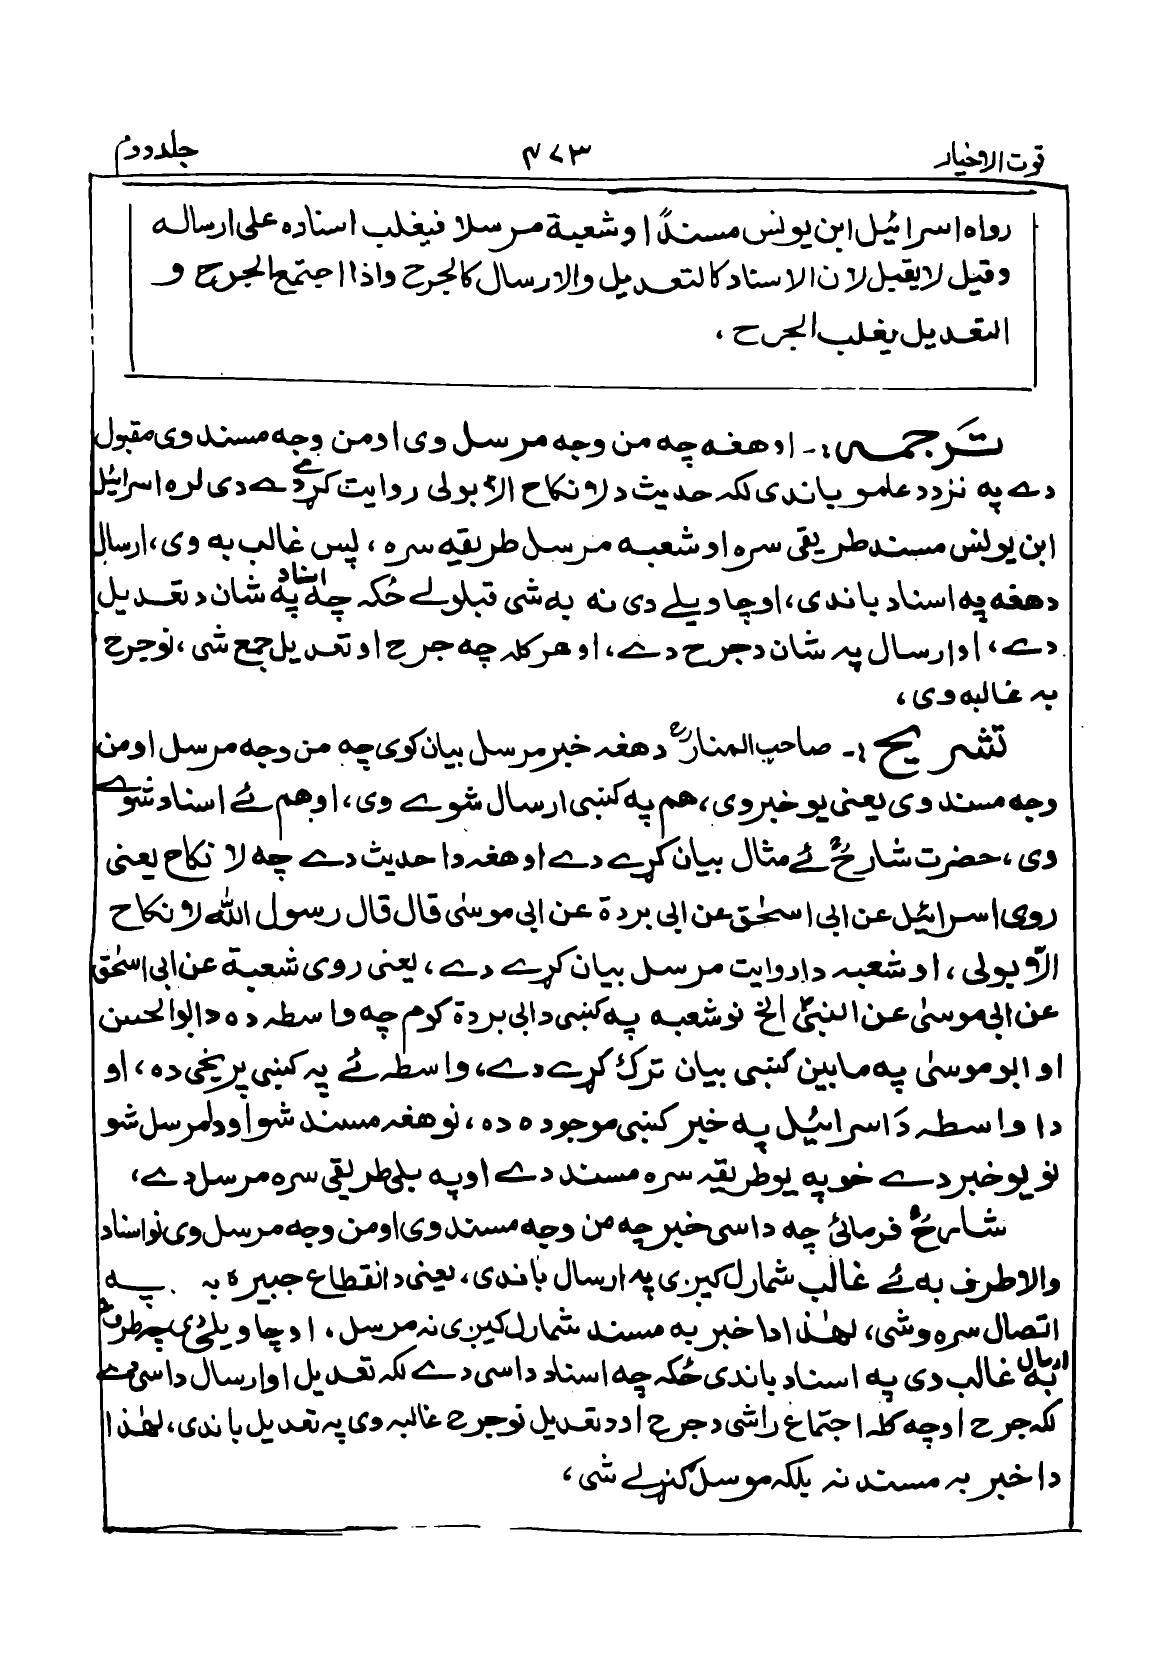 قوت الاخیار ۴۷۳ جلد دوم
رواه اسرائیل ابن یونس مسنداً او شعبة مرسلا فیغلب اسناده علی ارساله
وقیل لا یقبل لان الاسناد کالتعدیل والارسال کالجرح واذا اجتمع الجرح و
التعدیل یغلب الجرح ،
تَرجمہ :- او هغه چه من وجه مرسل وی او من وجه مسند وی مقبول
دے په نزد د علمو باندی لکه حدیث د لا نکاح الا بولی روایت کړے دے دی لره اسرائیل
ابن یونس مسند طریقی سره او شعبه مرسل طریقه سره ، پس غالب به وی، ارسال
دهغه په اسناد باندی، او چا ویلے دی نه به شی قبلولے ځکه چه اسناد په شان د تعدیل
دے، او ارسال په شان د جرح دے، او هر کله چه جرح او تعدیل جمع شی ، نو جرح
به غالبه وی ،
تشریح :- صاحب المنارؒ دهغه خبر مرسل بیان کوی چه من وجه مرسل او من
وجه مسند وی یعنی یو خبر وی، هم په کښی ارسال شوے وی، او هم ئے اسناد شوے
وی ، حضرت شارحؒ ئے مثال بیان کړے دے او هغه دا حدیث دے چه لا نکاح یعنی
روی اسرائیل عن ابی اسحٰق عن ابی بردة عن ابی موسیٰ قال قال رسول الله لا نکاح
الا بولی ، او شعبه دا روایت مرسل بیان کړے دے ، یعنی روی شعبة عن ابی اسحٰق
عن ابی موسیٰ عن النبیؐ الخ نو شعبه په کښی د ابی بردة کوم چه واسطه ده د ابوالحسن
او ابو موسیٰ په مابین کښی بیان ترک کړے دے، واسطه ئے په کښی پریخی ده ، او
دا واسطه دَ اسرائیل په خبر کښی موجوده ده ، نو هغه مسند شو او دا مرسل شو
نو یو خبر دے خو په یو طریقه سره مسند دے او په بلی طریقی سره مرسل دے،
شارحؒ فرمائی چه داسی خبر چه من وجه مسند وی او من وجه مرسل وی نو اسناد
والا طرف به ئے غالب شمارلے کیږی په ارسال باندی ، یعنی د انقطاع جبیره به په
اتصال سره وشی، لهٰذا دا خبر به مسند شمارلے کیږی نه مرسل ، او چا ویلی دی چه طرف د ارسال
به غالب دی په اسناد باندی ځکه چه اسناد داسی دے لکه تعدیل او ارسال داسی دے
لکه جرح او چه کله اجتماع راشی د جرح او د تعدیل نو جرح غالبه وی په تعدیل باندی، لهٰذا
دا خبر به مسند نه بلکه موسل کنړلے شی ،